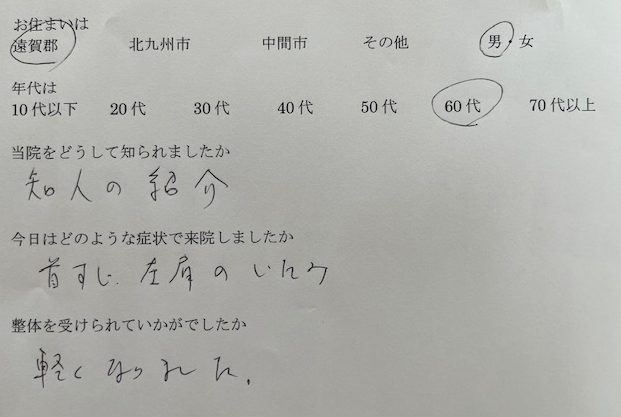 お住まいは
遠賀郡 北九州市 中間市 その他 男・女
年代は
10代以下 20代 30代 40代 50代 60代 70代以上
当院をどうして知られましたか
知人の紹介
今日はどのような症状で来院しましたか
首すじ、左肩のいたみ
整体を受けられていかがでしたか
軽くなりました。